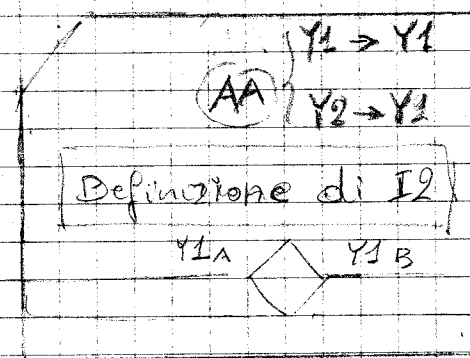 Y1 → Y1
AA
Y2 → Y1
Definizione di I2
Y1A Y1B